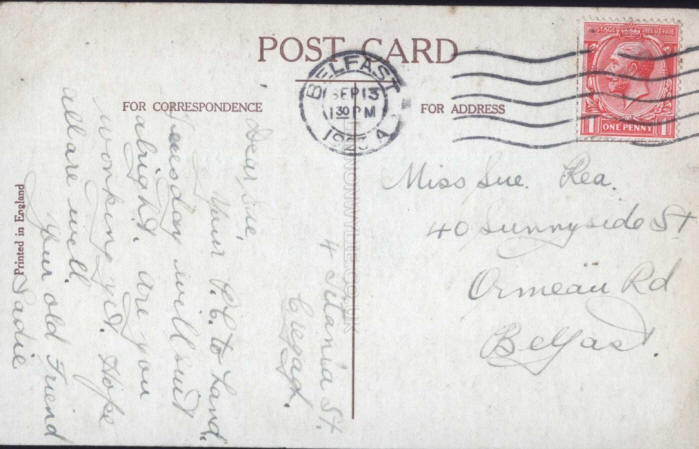 POST CARD
FOR CORRESPONDENCE
FOR ADDRESS
BELFAST
SEP 13
1 30 PM
A
POSTAGE
ONE PENNY
Miss Sue. Rea.
40 Sunnyside St
Ormeau Rd
Belfast.
4 Titania St.
Cregagh.
Dear Sue,
Your P.C. to hand.
Tuesday will suit
alright. Are you
working yet. Hope
all are well.
Your old Friend
Sadie
Printed in England